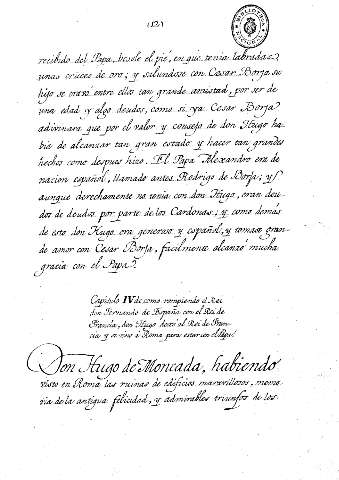 recibido del Papa, besole el pié, en que tenia labradas
unas cruces de oro; y saludose con Cesar Borja su
hijo se travó entre ellos tan grande amistad, por ser de
una edad y algo deudos, como si ya Cesar Borja
adivinara que por el valor y consejo de don Hugo ha-
bia de alcanzar tan gran estado y hacer tan grandes
hechos como despues hizo. El Papa Alexandro era de
nacion español, llamado antes Rodrigo de Borja; y
aunque derechamente no tenia con don Hugo, eran deu-
dos de deudos por parte de los Cardonas; y como demás
de esto don Hugo era generoso y español, y tomase gran-
de amor con Cesar Borja, facilmente alcanzó mucha
gracia con el Papa.
Capitulo IV de como rompiendo el Rei
don Fernando de España con el Rei de
Francia, don Hugo dexó al Rei de Fran-
cia y se vino á Roma para estar con el Papa.
Don Hugo de Moncada, habiendo
visto en Roma las ruinas de edificios maravillosos, memo-
ria de la antigua felicidad, y admirables triunfos de los